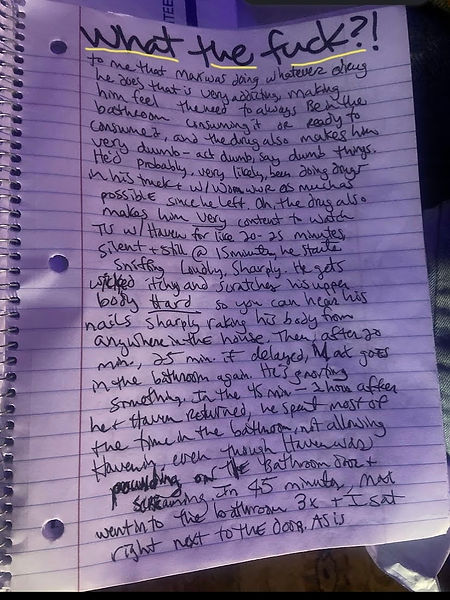 What the fuck?!
to me that Mat was doing whatever drug
he does that is very addicting, making
him feel the need to always Be in the
bathroom consuming it or ready to
consume it, and the drug also makes him
very dumb - act dumb, say dumb things.
He'd probably, very likely, been doing drugs
in his truck + w/ as much as
possible since he left. Oh, the drug also
makes him very content to watch
TV w/ Haven for like 20-25 minutes
silent + still @ 15 minutes, he starts
sniffing Loudly, Sharply. He gets
wicked itchy and scratches his upper
body Hard so you can hear his
nails sharply raking his body from
anywhere in the house. Then, after 20
min., 25 min. if delayed, Mat goes
in the bathroom again. He's snorting
something. In the 45 min - 1 hour after
he + Haven returned, he spent most of
the time in the bathroom, not allowing
Haven in even though Haven was
pounding on THE Bathroom door +
screaming. In 45 minutes, Mat
went into the bathroom 3x + I sat
right next to THE door. AS is